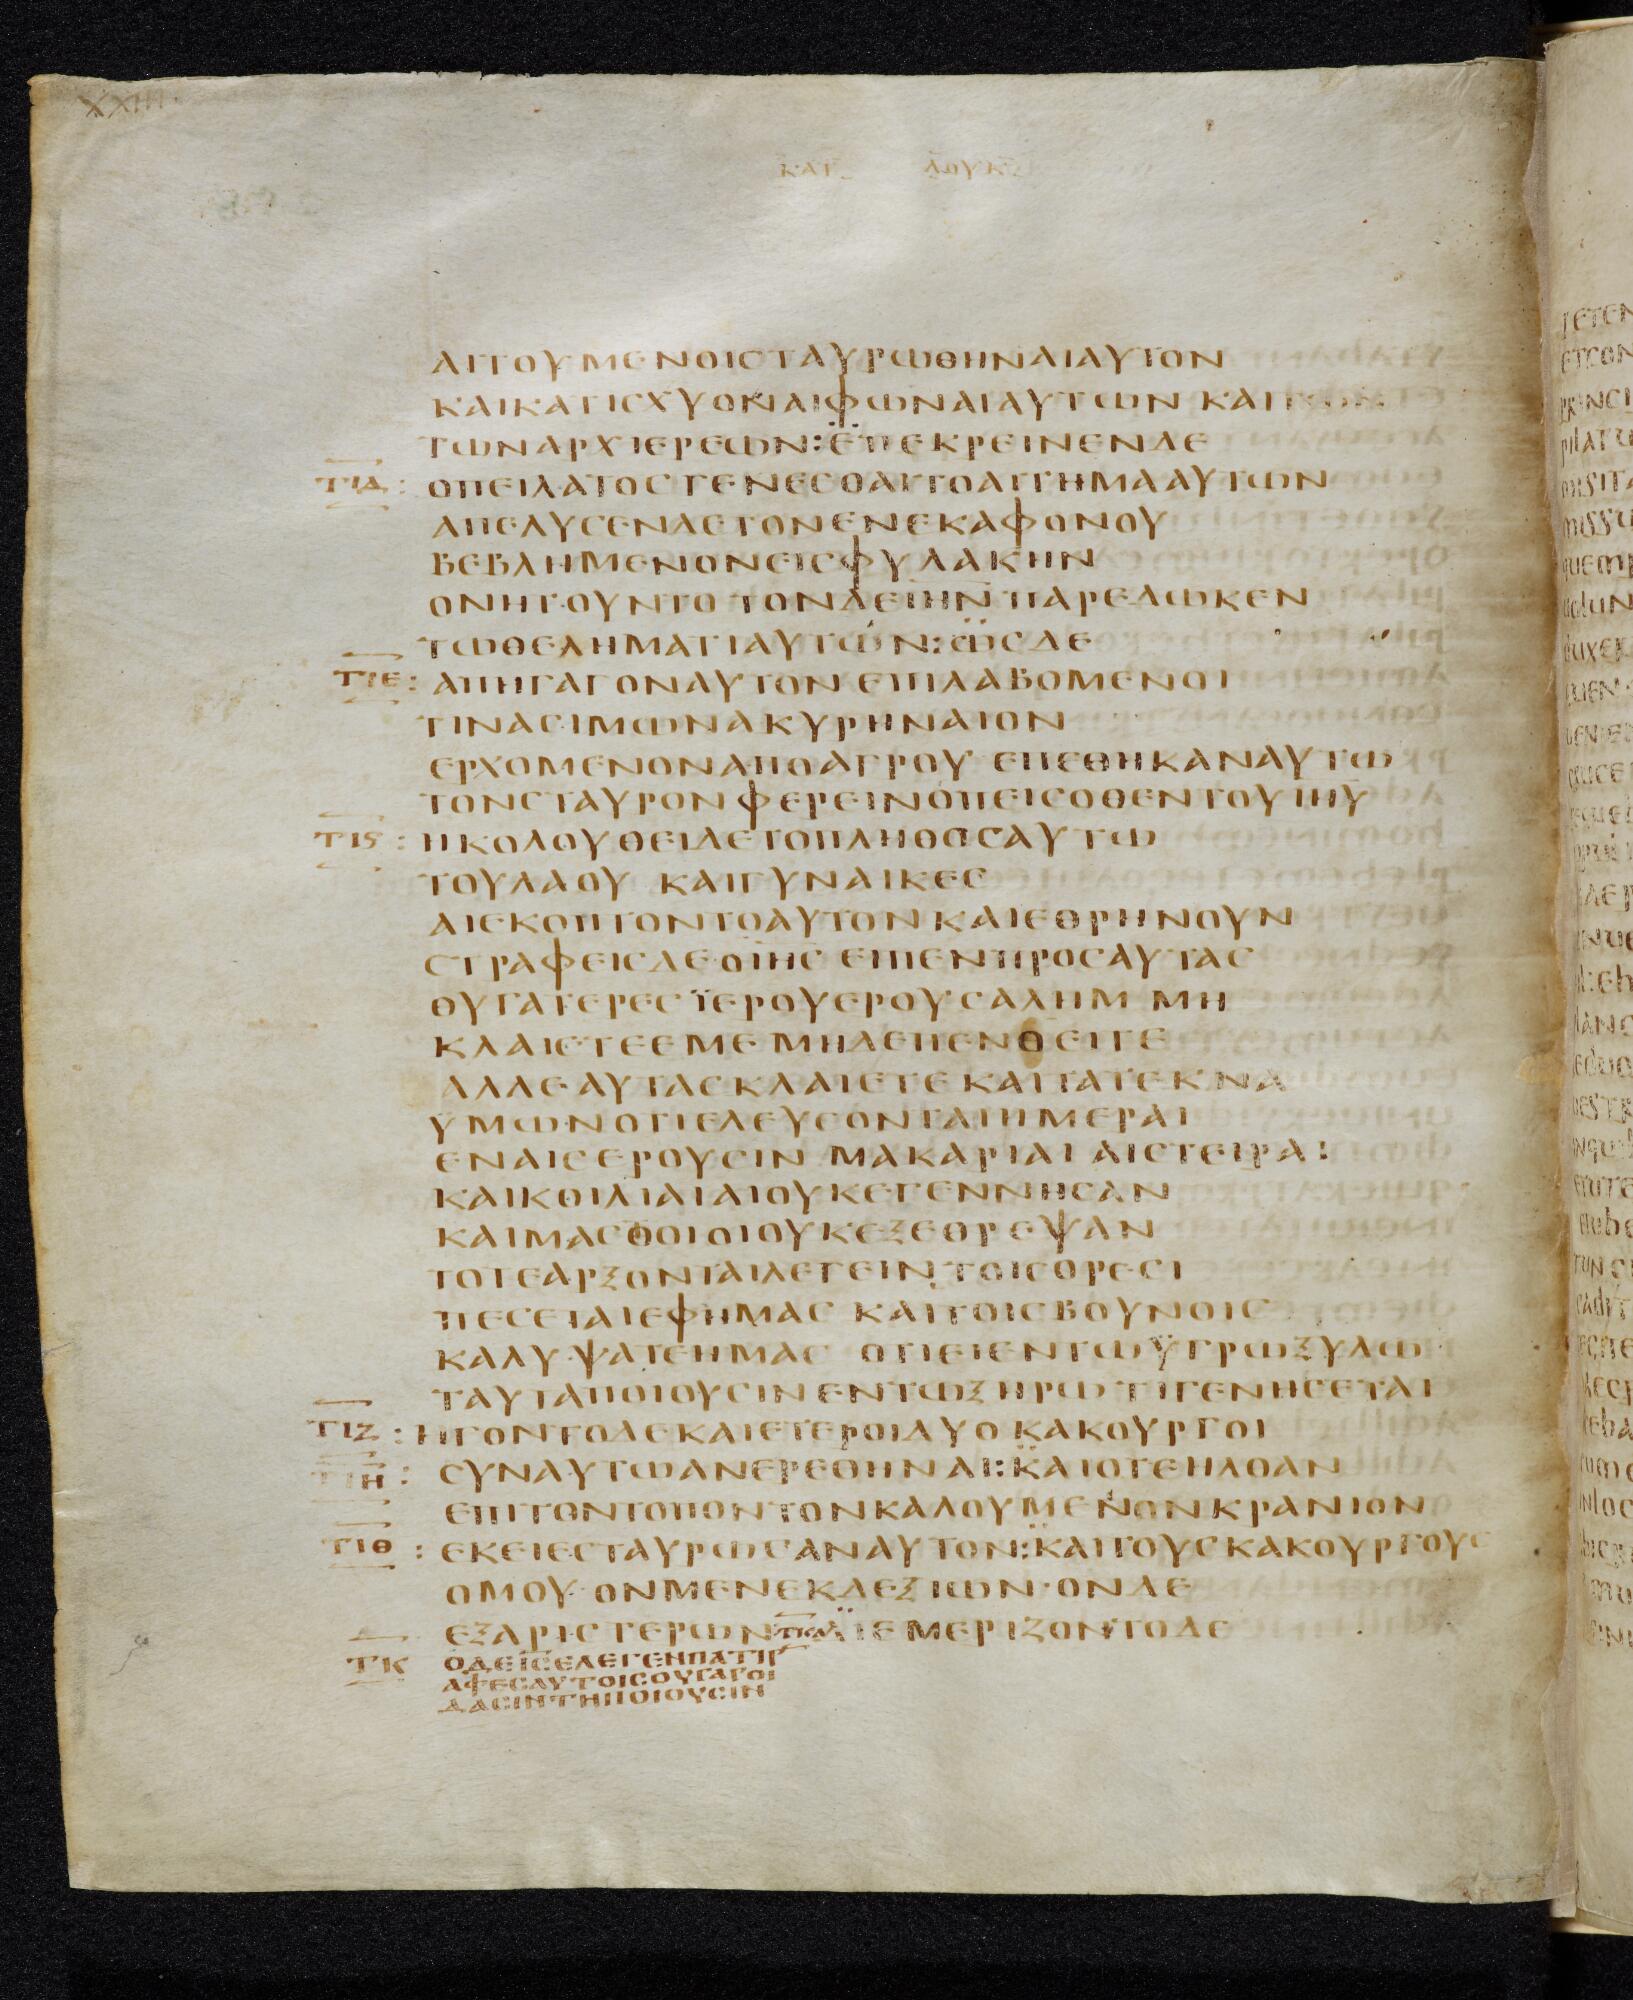 XXIII
ΚΑΤ ΛΟΥΚ
ΑΙΤΟΥΜΕΝΟΙΣΤΑΥΡΩΘΗΝΑΙΑΥΤΟΝ
ΚΑΙΚΑΤΙΣΧΥΟΝΑΙΦΩΝΑΙΑΥΤΩΝ ΚΑΙ
ΤΩΝΑΡΧΙΕΡΕΩΝ:ΕΠΕΚΡΕΙΝΕΝΔΕ
ΤΙΔ: ΟΠΕΙΛΑΤΟΣΓΕΝΕΣΘΑΙΤΟΑΙΤΗΜΑΑΥΤΩΝ
ΑΠΕΛΥΣΕΝΔΕΤΟΝΕΝΕΚΑΦΟΝΟΥ
ΒΕΒΛΗΜΕΝΟΝΕΙΣΦΥΛΑΚΗΝ
ΟΝΗΤΟΥΝΤΟ ΤΟΝΔΕΙΗΝ ΠΑΡΕΔΩΚΕΝ
ΤΩΘΕΛΗΜΑΤΙΑΥΤΩΝ:ΩΣΔΕ
ΤΙΕ: ΑΠΗΓΑΓΟΝΑΥΤΟΝ ΕΠΙΛΑΒΟΜΕΝΟΙ
ΤΙΝΑΣΙΜΩΝΑΚΥΡΗΝΑΙΟΝ
ΕΡΧΟΜΕΝΟΝΑΠΟΑΓΡΟΥ ΕΠΕΘΗΚΑΝΑΥΤΩ
ΤΟΝΣΤΑΥΡΟΝΦΕΡΕΙΝΟΠΕΙΣΟΘΕΝΤΟΥΙΗΥ
ΤΙϚ: ΗΚΟΛΟΥΘΕΙΔΕΤΟΠΛΗΘΟΣΑΥΤΩ
ΤΟΥΛΑΟΥ ΚΑΙΓΥΝΑΙΚΕΣ
ΑΙΕΚΟΠΤΟΝΤΟΑΥΤΟΝΚΑΙΕΘΡΗΝΟΥΝ
ΣΤΡΑΦΕΙΣΔΕΟΙΗΣ ΕΙΠΕΝΠΡΟΣΑΥΤΑΣ
ΘΥΓΑΤΕΡΕΣ ΪΕΡΟΥΕΡΟΥΣΑΛΗΜ ΜΗ
ΚΛΑΙΕΤΕΕΜΕ ΜΗΔΕΠΕΝΘΕΙΤΕ
ΑΛΛΕΑΥΤΑΣΚΛΑΙΕΤΕ ΚΑΙΤΑΤΕΚΝΑ
ΥΜΩΝΟΤΙΕΛΕΥΣΟΝΤΑΙΗΜΕΡΑΙ
ΕΝΑΙΣΕΡΟΥΣΙΝ ΜΑΚΑΡΙΑΙ ΑΙΣΤΕΙΡΑΙ
ΚΑΙΚΟΙΛΙΑΙΑΙΟΥΚΕΓΕΝΝΗΣΑΝ
ΚΑΙΜΑΣΘΟΙΟΙΟΥΚΕΞΕΘΡΕΨΑΝ
ΤΟΤΕΑΡΞΟΝΤΑΙΛΕΓΕΙΝ ΤΟΙΣΟΡΕΣΙ
ΠΕΣΕΤΑΙΕΦΗΜΑΣ ΚΑΙΤΟΙΣΒΟΥΝΟΙΣ
ΚΑΛΥΨΑΤΕΗΜΑΣ ΟΤΙΕΙΕΝΤΩΫΓΡΩΞΥΛΩ
ΤΑΥΤΑΠΟΙΟΥΣΙΝΕΝΤΩΞΗΡΩ ΤΙΓΕΝΗΣΕΤΑΙ
ΤΙΖ: ΗΓΟΝΤΟΔΕΚΑΙΕΤΕΡΟΙΔΥΟ ΚΑΚΟΥΡΓΟΙ
ΤΙΗ: ΣΥΝΑΥΤΩΑΝΕΡΕΘΗΝΑΙ:ΚΑΙΟΤΕΗΛΘΑΝ
ΕΠΙΤΟΝΤΟΠΟΝΤΟΝΚΑΛΟΥΜΕΝΟΝΚΡΑΝΙΟΝ
ΤΙΘ: ΕΚΕΙΕΣΤΑΥΡΩΣΑΝΑΥΤΟΝ:ΚΑΙΤΟΥΣΚΑΚΟΥΡΓΟΥΣ
ΟΜΟΥ·ΟΝΜΕΝΕΚΔΕΞΙΩΝ·ΟΝΔΕ
ΕΞΑΡΙΣΤΕΡΩΝ ΤΚΑ ΔΙΕΜΕΡΙΖΟΝΤΟΔΕ
ΤΚ ΟΔΕΙΣΕΛΕΓΕΝΠΑΤΗΡ
ΑΦΕΣΑΥΤΟΙΣΟΥΓΑΡΟΙ
ΔΑΣΙΝΤΗΠΟΙΟΥΣΙΝ